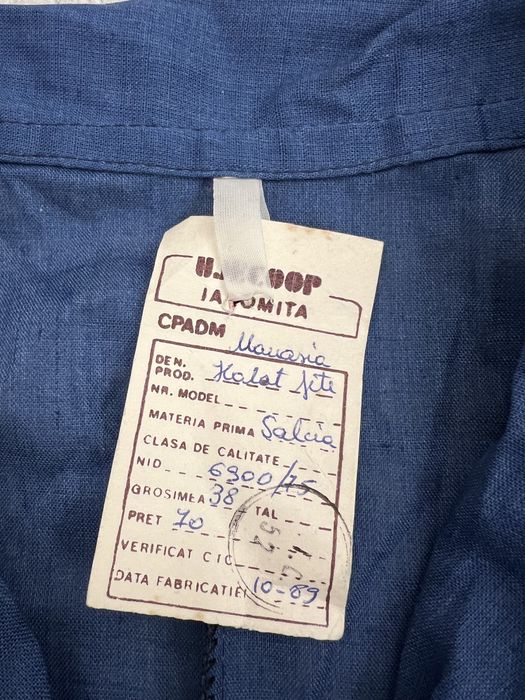 COOP
IALOMITA
CPADM Manasia
DEN. PROD. Halat fete
NR. MODEL
MATERIA PRIMA Salcia
CLASA DE CALITATE
NID 6900/75
GROSIMEA 38 TAL
PRET 70
VERIFICAT CTC
DATA FABRICATIEI 10-89
52